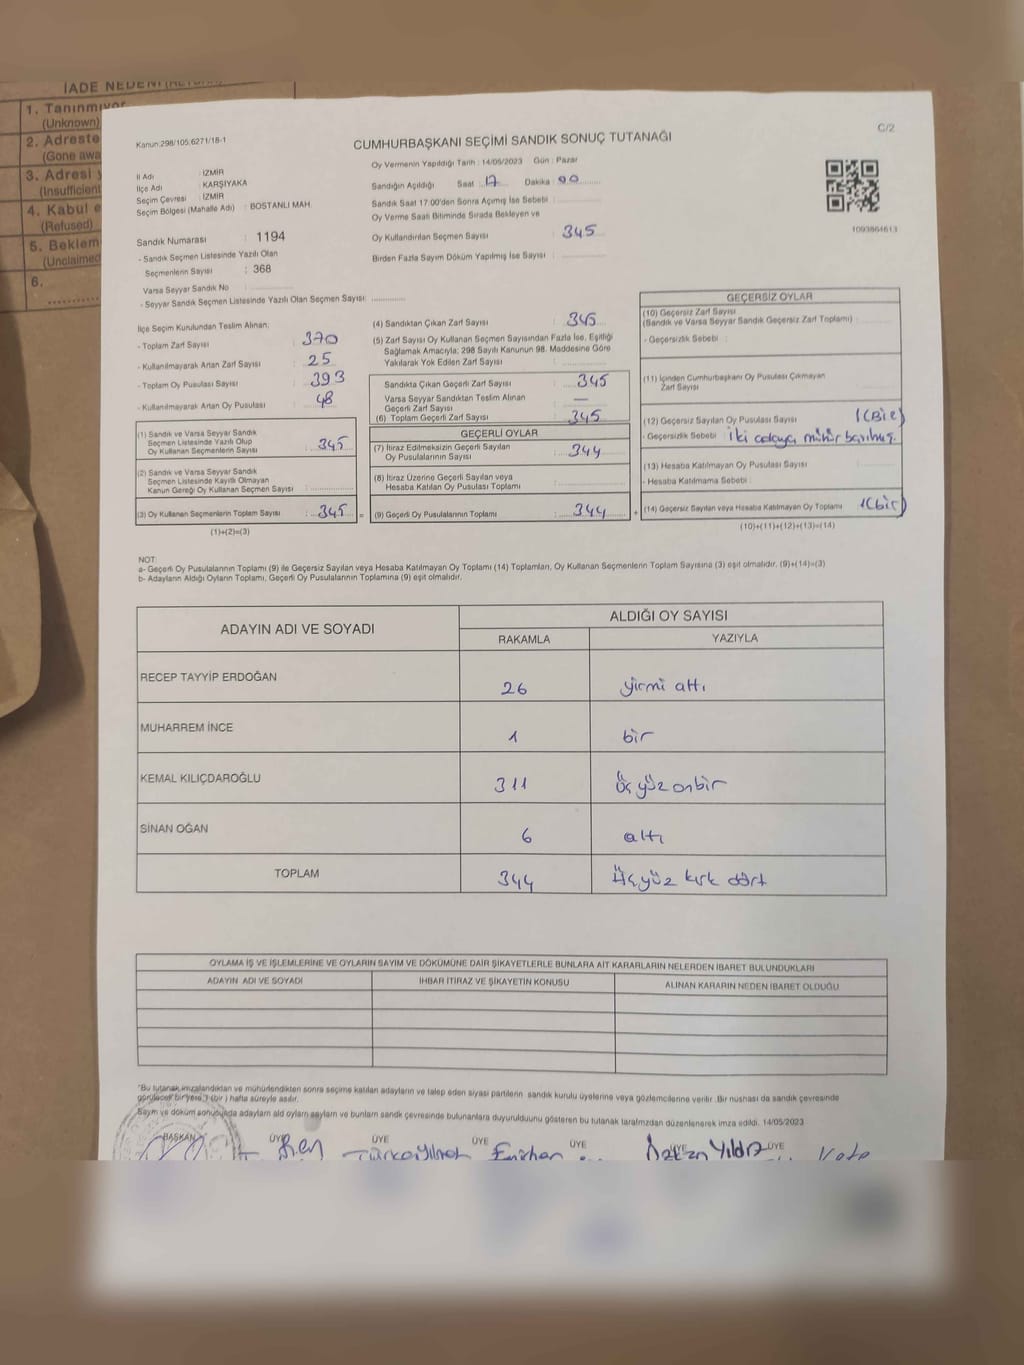 İADE NEDENİ
1. Tanınmıyor
(Unknown)
2. Adreste
(Gone awa
3. Adresi y
(Insufficient
4. Kabul e
(Refused)
5. Beklem
(Unclaimed
6.
C/2
Kanun:298/105;6271/18-1
CUMHURBAŞKANI SEÇİMİ SANDIK SONUÇ TUTANAĞI
Oy Vermenin Yapıldığı Tarih : 14/05/2023 Gün : Pazar
İl Adı : İZMİR
İlçe Adı : KARŞIYAKA
Seçim Çevresi : İZMİR
Seçim Bölgesi (Mahalle Adı) : BOSTANLI MAH.
Sandığın Açıldığı Saat : 17 Dakika : 00
Sandık Saat 17:00'den Sonra Açımış İse Sebebi :
Oy Verme Saati Bitiminde Sırada Bekleyen ve
Oy Kullandırılan Seçmen Sayısı : 345
Birden Fazla Sayım Döküm Yapılmış İse Sayısı :
1093864613
Sandık Numarası : 1194
- Sandık Seçmen Listesinde Yazılı Olan
Seçmenlerin Sayısı : 368
Varsa Seyyar Sandık No
- Seyyar Sandık Seçmen Listesinde Yazılı Olan Seçmen Sayısı:
İlçe Seçim Kurulundan Teslim Alınan;
- Toplam Zarf Sayısı : 370
- Kullanılmayarak Artan Zarf Sayısı : 25
- Toplam Oy Pusulası Sayısı : 393
- Kullanılmayarak Artan Oy Pusulası : 48
(1) Sandık ve Varsa Seyyar Sandık
Seçmen Listesinde Yazılı Olup
Oy Kullanan Seçmenlerin Sayısı : 345
(2) Sandık ve Varsa Seyyar Sandık
Seçmen Listesinde Kayıtlı Olmayan
Kanun Gereği Oy Kullanan Seçmen Sayısı :
(3) Oy Kullanan Seçmenlerin Toplam Sayısı : 345 =
(1)+(2)=(3)
(4) Sandıktan Çıkan Zarf Sayısı : 345
(5) Zarf Sayısı Oy Kullanan Seçmen Sayısından Fazla İse, Eşitliği
Sağlamak Amacıyla; 298 Sayılı Kanunun 98. Maddesine Göre
Yakılarak Yok Edilen Zarf Sayısı :
Sandıkta Çıkan Geçerli Zarf Sayısı : 345
Varsa Seyyar Sandıktan Teslim Alınan
Geçerli Zarf Sayısı : —
(6) Toplam Geçerli Zarf Sayısı : 345
GEÇERLİ OYLAR
(7) İtiraz Edilmeksizin Geçerli Sayılan
Oy Pusulalarının Sayısı : 344
(8) İtiraz Üzerine Geçerli Sayılan veya
Hesaba Katılan Oy Pusulası Toplamı :
(9) Geçerli Oy Pusulalarının Toplamı : 344 +
GEÇERSİZ OYLAR
(10) Geçersiz Zarf Sayısı
(Sandık ve Varsa Seyyar Sandık Geçersiz Zarf Toplamı) :
- Geçersizlik Sebebi :
(11) İçinden Cumhurbaşkanı Oy Pusulası Çıkmayan
Zarf Sayısı :
(12) Geçersiz Sayılan Oy Pusulası Sayısı : 1(Bir)
- Geçersizlik Sebebi : İki adaya mühür basılmış.
(13) Hesaba Katılmayan Oy Pusulası Sayısı :
- Hesaba Katılmama Sebebi :
(14) Geçersiz Sayılan veya Hesaba Katılmayan Oy Toplamı : 1(bir)
(10)+(11)+(12)+(13)=(14)
NOT:
a- Geçerli Oy Pusulalarının Toplamı (9) ile Geçersiz Sayılan veya Hesaba Katılmayan Oy Toplamı (14) Toplamları, Oy Kullanan Seçmenlerin Toplam Sayısına (3) eşit olmalıdır. (9)+(14)=(3)
b- Adayların Aldığı Oyların Toplamı, Geçerli Oy Pusulalarının Toplamına (9) eşit olmalıdır.
ADAYIN ADI VE SOYADI ALDIĞI OY SAYISI
RAKAMLA YAZIYLA
RECEP TAYYİP ERDOĞAN 26 yirmi altı
MUHARREM İNCE 1 bir
KEMAL KILIÇDAROĞLU 311 Üç yüz onbir
SİNAN OĞAN 6 altı
TOPLAM 344 Üçyüz kırk dört
OYLAMA İŞ VE İŞLEMLERİNE VE OYLARIN SAYIM VE DÖKÜMÜNE DAİR ŞİKAYETLERLE BUNLARA AİT KARARLARIN NELERDEN İBARET BULUNDUKLARI
ADAYIN ADI VE SOYADI İHBAR İTİRAZ VE ŞİKAYETİN KONUSU ALINAN KARARIN NEDEN İBARET OLDUĞU
"Bu tutanak imzalandıktan ve mühürlendikten sonra seçime katılan adayların ve talep eden siyasi partilerin sandık kurulu üyelerine veya gözlemcilerine verilir. Bir nüshası da sandık çevresinde
görülecek bir yere 1 (bir ) hafta süreyle asılır.
Sayım ve döküm sonucunda adayların aldığı oyların sayıların ve bunların sandık çevresinde bulunanlara duyurulduğunu gösteren bu tutanak tarafımızdan düzenlenerek imza edildi. 14/05/2023
BAŞKAN ÜYE ÜYE ÜYE ÜYE ÜYE ÜYE